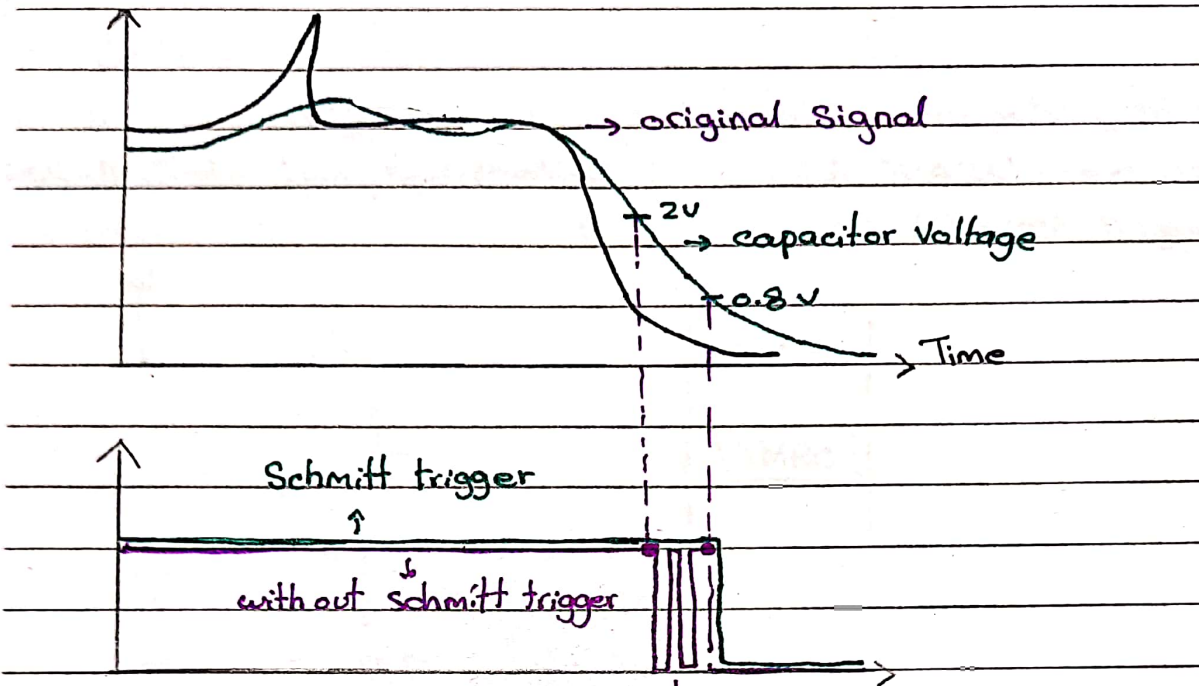 → original Signal
2v
→ capacitor Voltage
0.8 v
Time
Schmitt trigger
without schmitt trigger